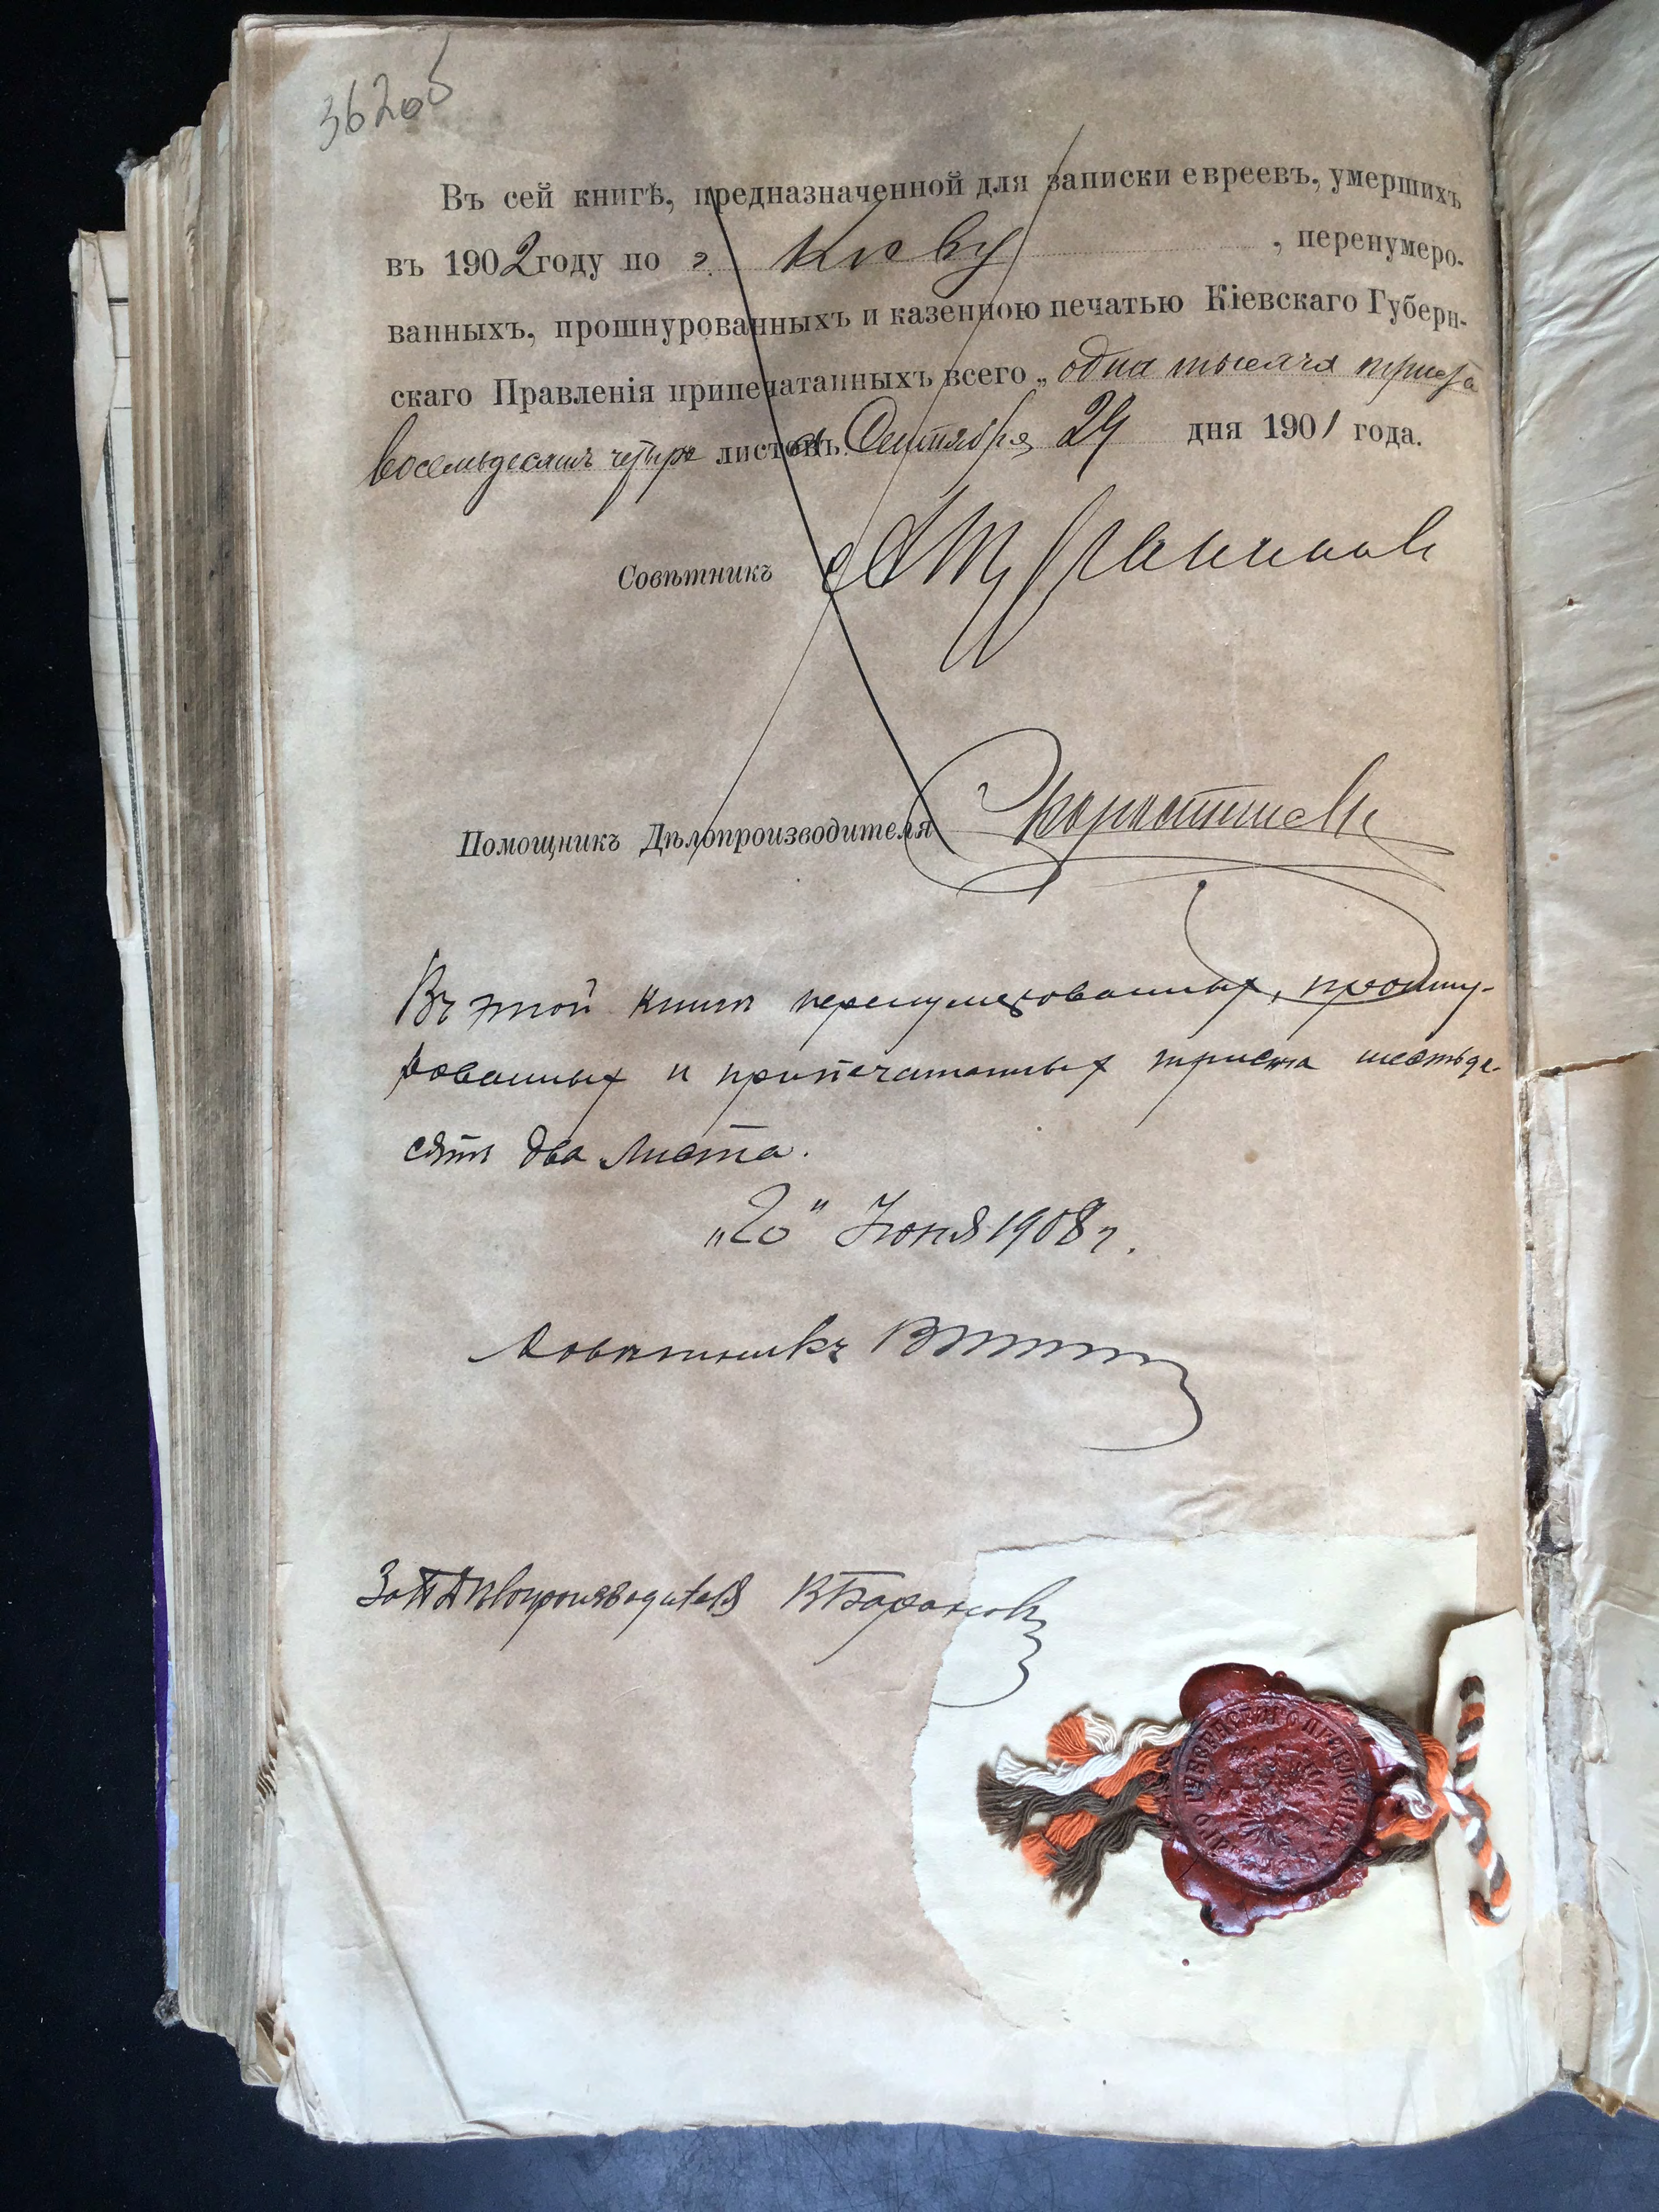 362об
Въ сей книгѣ, предназначенной для записки евреевъ, умершихъ
въ 1902 году по г. Кіеву, перенумеро-
ванныхъ, прошнурованныхъ и казенною печатью Кіевскаго Губерн-
скаго Правленія припечатанныхъ всего „одна тысяча триста
восемьдесятъ четыре листовъ. Сентября 24 дня 1901 года.
Совѣтникъ
Помощникъ Дѣлопроизводителя
Въ этой книгѣ перенумерованныхъ, прошну-
рованныхъ и припечатанныхъ триста шестьде-
сятъ два листа.
„20" Іюня 1908 г.
Совѣтникъ
За Дѣлопроизводителя В Барановъ
ГУБЕРНСКАГО ПРАВЛЕНІЯ